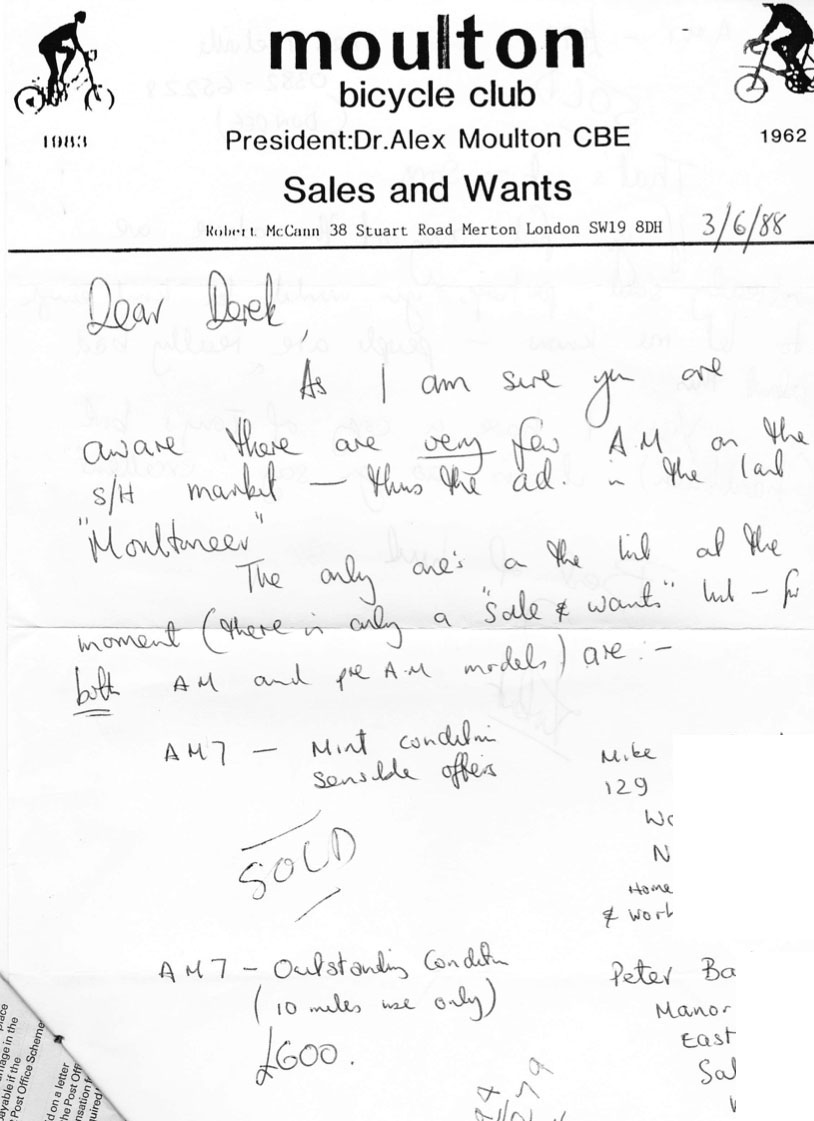 moulton
bicycle club
1983
President:Dr.Alex Moulton CBE
1962
Sales and Wants
Robert McCann 38 Stuart Road Merton London SW19 8DH
3/6/88
Dear Derek,
As I am sure you are
aware there are very few A.M on the
S/H market — thus the ad. in the last
"Moultoneer"
The only one's on the list at the
moment (there is only a "Sale & wants" list - for
both AM and pre A.M models) are:-
AM7 - Mint condition
Sensible offers
Mike
129
Wo
N
Home
& Work
SOLD
AM7 - Outstanding Condition
(10 miles use only)
£600.
Peter Ba
Manor
East
Sal
place
amage in the
payable if the
Post Office Scheme
d on a letter
the Post Off
nsation f
quired